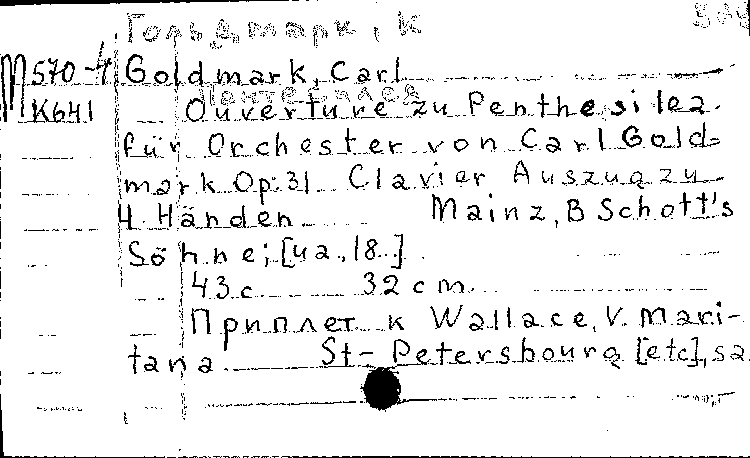 Гольдмарк, К
М570-4 Goldmark, Carl
Пентесилея
К641 Ouverture zu Penthesilea
für Orchester von Carl Gold-
mark Op: 31 Clavier Auszug zu
4 Händen Mainz, B Schott's
Söhne; [u a., 18..]
43 с 32 cm.
Приплет к Wallace, V. Mari-
tana St-Petersbourg [etc], sa.